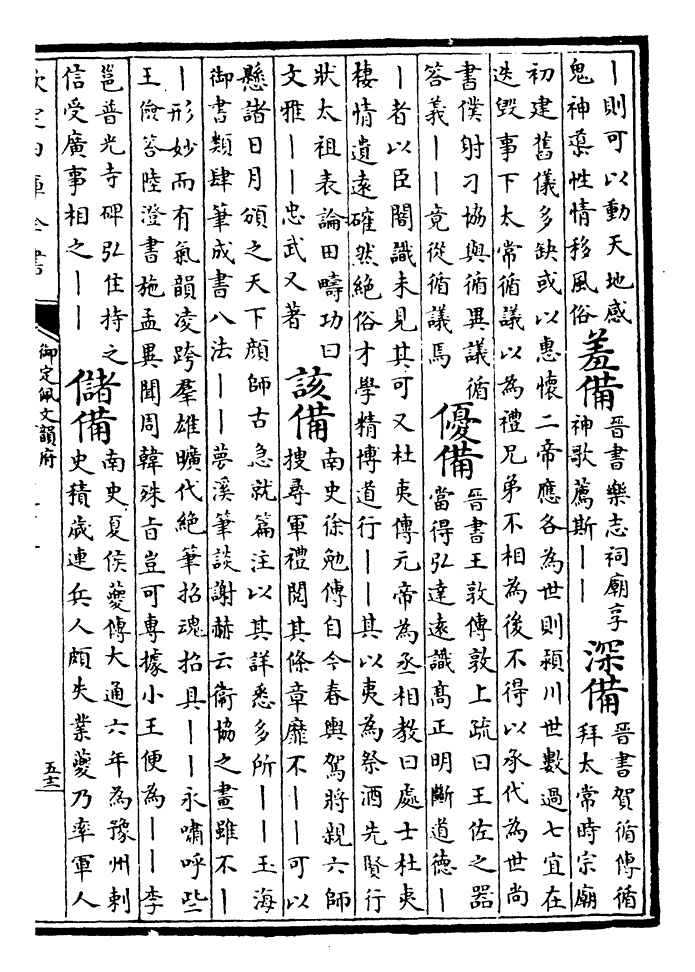 丨則可以動天地感
鬼神藥性情移風俗
羞備
晉書樂志祠廟享
神歌薦斯丨丨
深備
晉書賀循傳循
拜太常時宗廟
初建舊儀多缺或以惠懷二帝應各為世則潁川世數過七宜在
迭毁事下太常循議以為禮兄弟不相為後不得以承代為世尚
書僕射刁協與循異議循
答義丨丨竟從循議焉
優備
晉書王敦傳敦上疏曰王佐之器
當得弘達遠識高正明斷道德丨
丨者以臣闇識未見其可又杜夷傳元帝為丞相教曰處士杜夷
棲情遺遠確然絶俗才學精博道行丨丨其以夷為祭酒先賢行
狀太祖表論田疇功曰
文雅丨丨忠武又著
該備
南史徐勉傳自今春輿駕將親六師
搜尋軍禮閱其條章靡不丨丨可以
懸諸日月頒之天下顔師古急就篇注以其詳悉多所丨丨玉海
御書類肆筆成書八法丨丨夢溪筆談謝赫云衛協之畫雖不丨
丨形妙而有氣韻凌跨羣雄曠代絶筆招魂招具丨丨永嘯呼些
王儉答陸澄書施孟異聞周韓殊旨豈可專據小王便為丨丨李
邕普光寺碑弘住持之
信受廣事相之丨丨
儲備
南史夏侯夔傳大通六年為豫州刺
史積歲連兵人頗失業夔乃率軍人
欽定四庫全書
御定佩文韻府